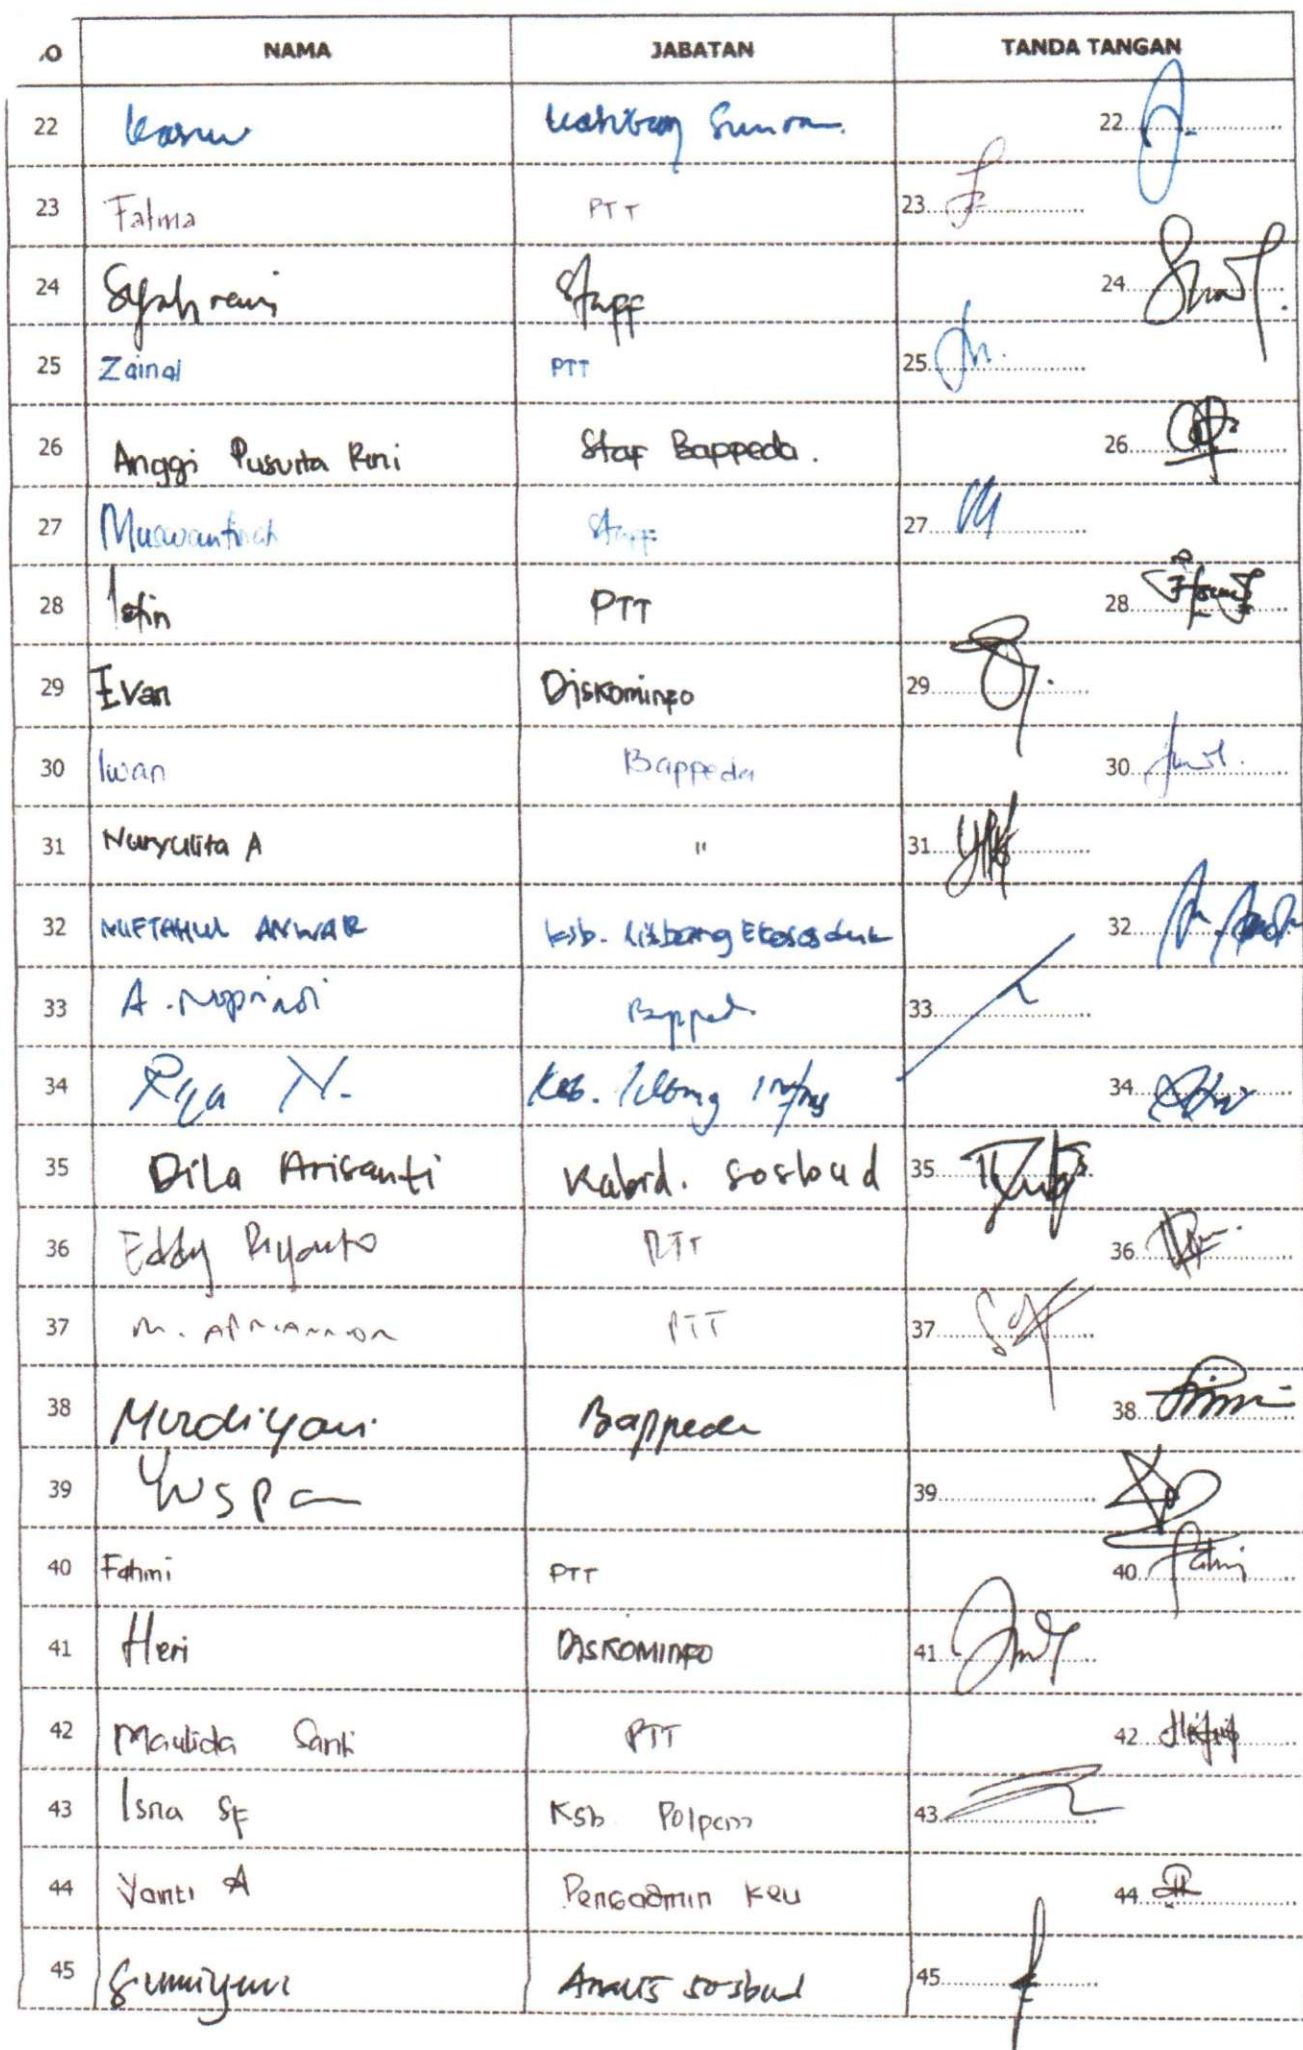 NAMA JABATAN TANDA TANGAN
22 22
23 Fatma PTT 23
24 Syahreni Staff 24
25 Zainal PTT 25
26 Anggi Puspita Rini Staf Bappeda. 26
27 Muswantinah Staff 27
28 Istin PTT 28
29 Evan Diskominfo 29
30 Iwan Bappeda 30
31 Nuryulita A " 31
32 MIFTAHUL ANWAR ksb. Litbang Ekososduk 32
33 A. Bapped 33
34 N. 34
35 Dila Arisanti Kabid. Sosbud 35
36 Eddy Riyanto PTT 36
37 M. PTT 37
38 Murdiyani Bappeda 38
39 39
40 Fahmi PTT 40 Fahmi
41 Heri DISKOMINFO 41
42 Maulida Santi PTT 42
43 Isna SF Ksb Polpem 43
44 Yanti A Pengadmin Keu 44
45 Sumiyani Analis sosbud 45